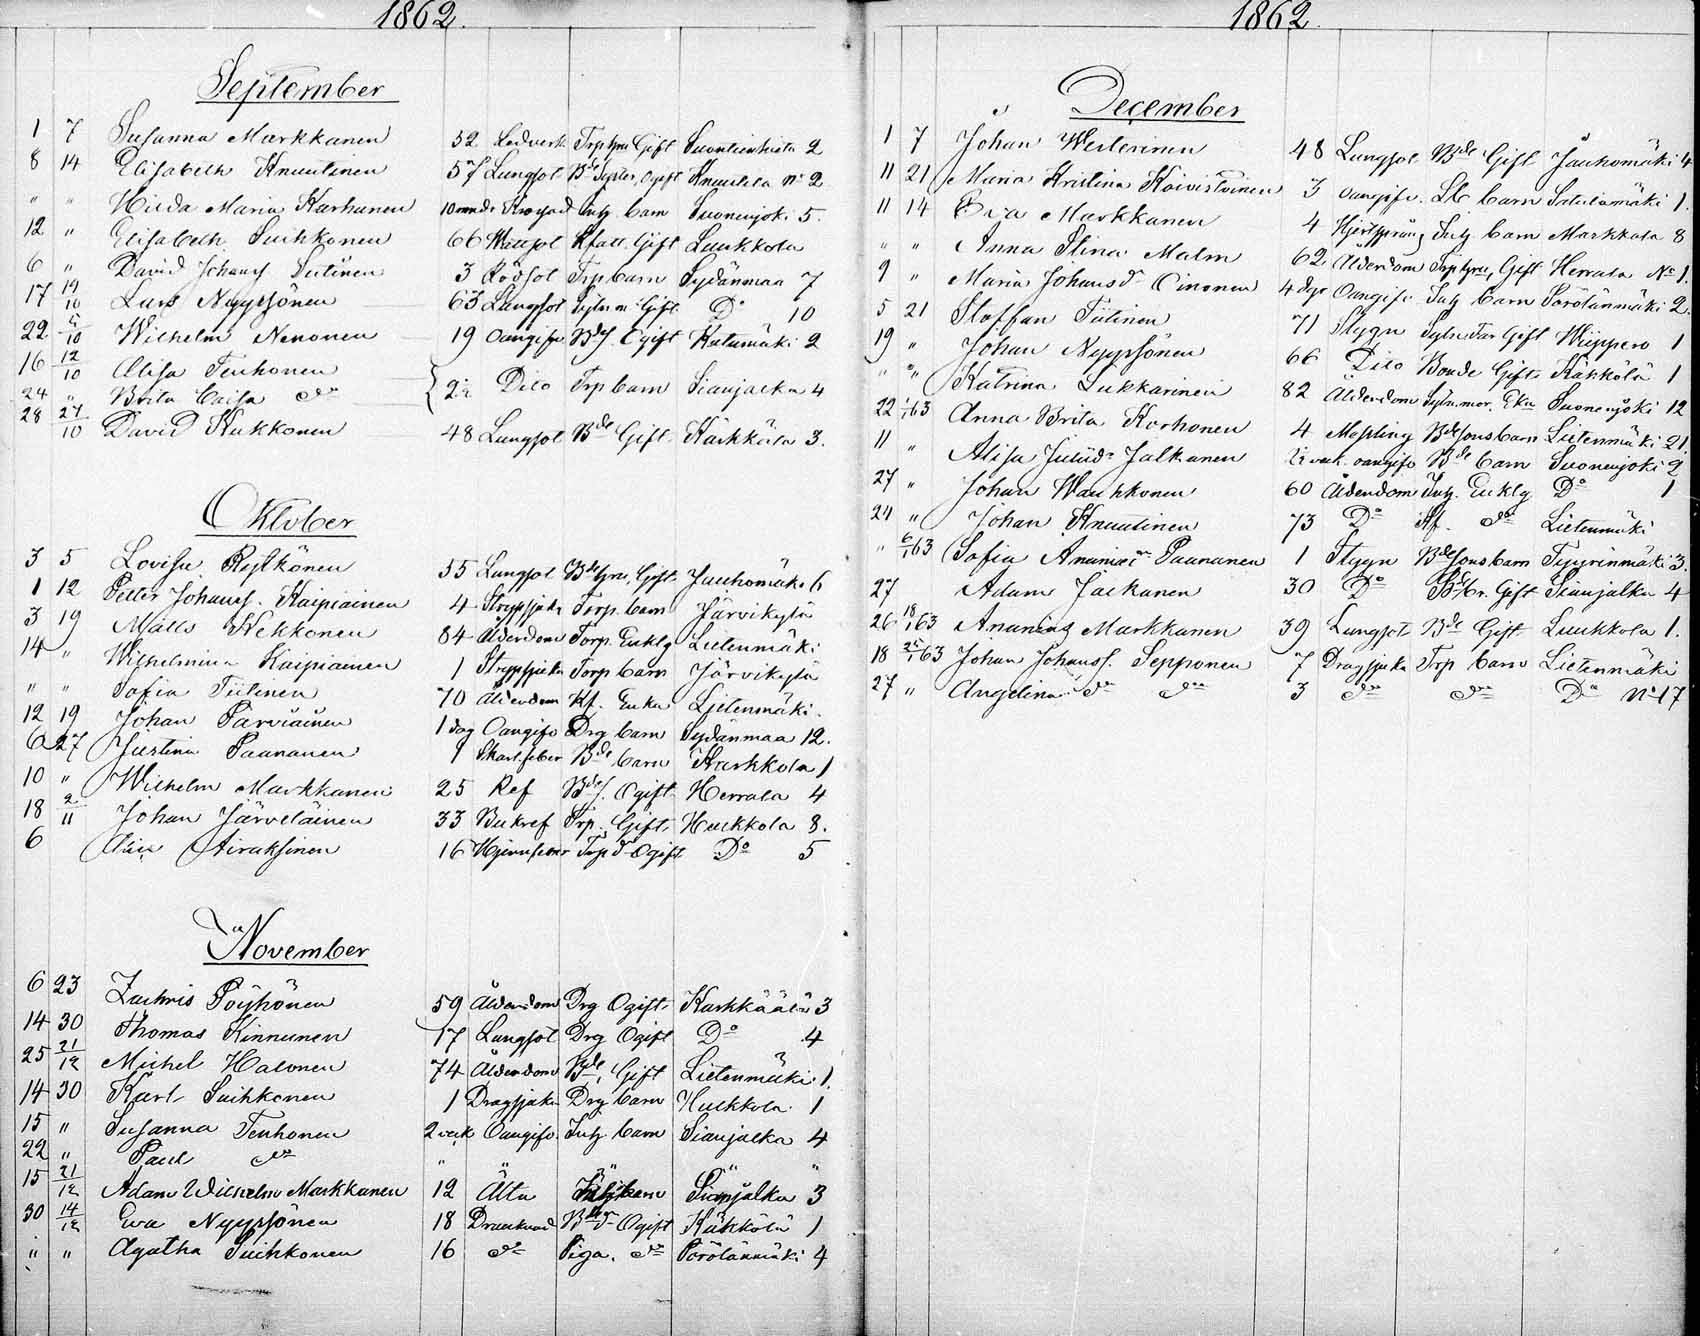 1862.
September
1 7 Susanna Markkanen 52 Ledverk Trp hru Gift Suontientaka 2
8 14 Elisabeth Knuutinen 57 Lungsot Bde Syster, Ogift Knuutila No 2
" " Hilda Maria Karhunen 10 månd. Inh. barn Suonenjoki 5.
12 " Elisabeth Suihkonen 66 Gift Luukkola
6 " David Johans. Tiitinen 3 Rödsot Trp barn Sydänmaa 7
17 19/10 Lars Nyyssönen 63 Lungsot Sytn.m Gift Do 10
22 5/10 Wilhelm Nenonen 19 Oangifv Bdes. Ogift Kutumäki 2
16 12/10 Alisa Tenhonen
24 " Brita Caisa do 2½ Dito Trp barn Sianjalka 4
28 27/10 David Kukkonen 48 Lungsot Bde Gift Kärkkälä 3.
Oktober
3 5 Lovisa Rytkönen 55 Lungsot Bde hru, Gift Jauhomäki 6
1 12 Petter Johans. Kaipiainen 4 Strypsjuka Torp. barn Järvikylä
3 19 Matts Kekkonen 84 Ålderdom Torp. Enklg Lietenmäki
14 " Wilhelmina Kaipiainen 1 Strypsjuka Torp barn Järvikylä
" " Sofia Tiitinen 70 Ålderdom Hf. Enka Lietenmäki.
12 19 Johan Parviainen 1 dag Oangifv Drg barn Sydänmaa 12.
6 27 Justina Paananen 1 Skarl.feber Bde barn Kurkkola 1
10 " Wilhelm Markkanen 25 Ref Bdes. Ogift Herrala 4
18 2/11 Johan Järveläinen 33 Bukref Trp. Gift Hulkkola 8.
6 Airaksinen 16 Hjernfeber Trp dr Ogift Do 5
November
6 23 Zachris Pöyhönen 59 Ålderdom Drg Ogift Karkkäälä 3
14 30 Thomas Kinnunen 17 Lungsot Drg Ogift Do 4
25 21/12 Michel Halonen 74 Ålderdom Bde, Gift Lietenmäki 1.
14 30 Karl Suihkonen 1 Dragsjuka Drg barn Hulkkola 1
15 " Susanna Tenhonen 2 veck Oangifv. Inh. barn Sianjalka 4
22 " Paul do " " " " "
15 21/12 Adam Wilhelm Markkanen 12 Älta barn Sianjalka 3
30 14/12 Ewa Nyyssönen 18 Drunknad Bdedr Ogift Käkkölä 1
" " Agatha Suihkonen 16 do Piga. do Pörölänmäki 4
1862.
December
1 7 Johan Westerinen 48 Lungsot Bde Gift Jauhomäki 4
11 21 Maria Kristina Koivistoinen 3 Oangifv. barn 1.
11 14 Eva Markkanen 4 Hjertsprång Inh. barn Markkala 8
" " Anna Stina Malm 62 Ålderdom Trp hru, Gift Herrala No 1.
9 " Maria Johansdr Oinonen 4 dgr Oangifv. Inh barn Pörölänmäki 2.
5 21 Staffan Tiitinen 71 Stygn Sytn.Far Gift Wiippero 1
19 " Johan Nyyssönen 66 Dito Bonde Gift Käkkölä 1
" " Katrina Lukkarinen 82 Ålderdom Sytn.mor. Eka Suonenjoki 12
22 1/1 63 Anna Brita Korhonen 4 Messling Bdesons barn Lietenmäki 21.
11 " Alisa Juliidr Jalkanen 1½ veck. oangifv Bde barn Suonenjoki 2
27 " Johan Wauhkonen 60 Ålderdom Inh. Enklg Do 1
24 " Johan Knuutinen 73 Do Hf. do Lietenmäki
" 6/1 63 Sofia Paananen 1 Stygn Bdesons barn Tyyrinmäki 3.
27 Adam Jalkanen 30 Do Gift Sianjalka 4
26 18/1 63 Ananias Markkanen 39 Lungsot Bde Gift Luukkola 1.
18 25/1 63 Johan Johans. Sepponen 7 Dragsjuka Trp barn Lietenmäki
27 " Angelina do do 3 do do Do No 17